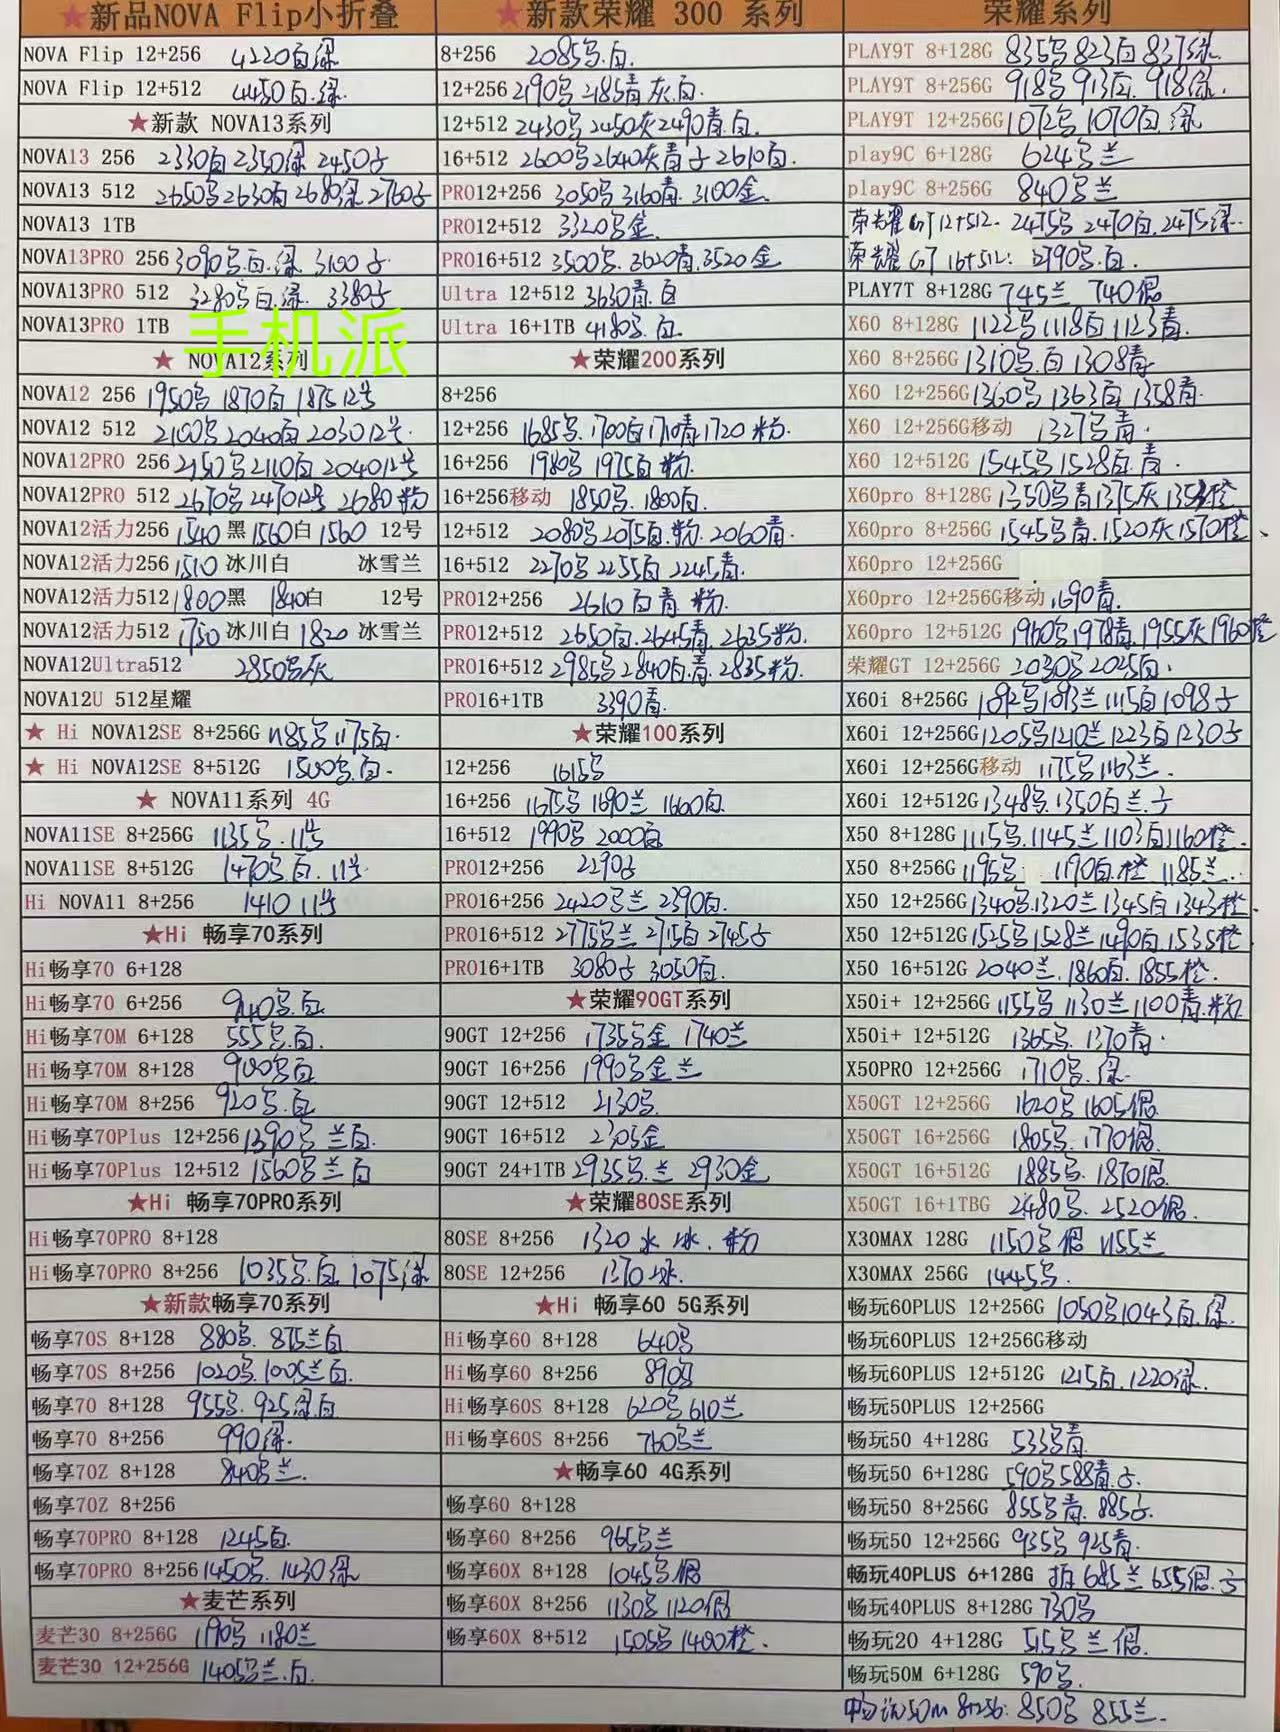 ★新品NOVA Flip小折叠
NOVA Flip 12+256 4220白绿
NOVA Flip 12+512 4450白.绿.
★新款 NOVA13系列
NOVA13 256 2330白2350绿 2450子
NOVA13 512 2650号2630白2680绿2760子
NOVA13 1TB
NOVA13PRO 256 3090号.白.绿 3100子
NOVA13PRO 512 3280号白.绿. 3380子
NOVA13PRO 1TB
手机派
★ NOVA12系列
NOVA12 256 1950号 1870白 1875 12号
NOVA12 512 2100号2040白2030 12号.
NOVA12PRO 256 2150号2110白2040 12号
NOVA12PRO 512 2670号2470 12号 2680粉
NOVA12活力256 1540黑1560白1560 12号
NOVA12活力256 1510冰川白 冰雪兰
NOVA12活力512 1800黑 1840白 12号
NOVA12活力512 1750冰川白 1820冰雪兰
NOVA12Ultra512 2850号灰
NOVA12U 512星耀
★ Hi NOVA12SE 8+256G 1185号1175白.
★ Hi NOVA12SE 8+512G 1500号.白.
★ NOVA11系列 4G
NOVA11SE 8+256G 1135号.11号
NOVA11SE 8+512G 1470号白.11号
Hi NOVA11 8+256 1410 11号
★Hi 畅享70系列
Hi畅享70 6+128
Hi畅享70 6+256 940号.白
Hi畅享70M 6+128 555号.白.
Hi畅享70M 8+128 900号白
Hi畅享70M 8+256 920号.白
Hi畅享70Plus 12+256 1390号 兰白.
Hi畅享70Plus 12+512 1560号兰白
★Hi 畅享70PRO系列
Hi畅享70PRO 8+128
Hi畅享70PRO 8+256 1035号.白 1075绿
★新款畅享70系列
畅享70S 8+128 880号. 875兰白
畅享70S 8+256 1020号.1005兰白.
畅享70 8+128 955号.925绿.白
畅享70 8+256 990绿.
畅享70Z 8+128 840号兰.
畅享70Z 8+256
畅享70PRO 8+128 1245白.
畅享70PRO 8+256 1450号. 1430绿
★麦芒系列
麦芒30 8+256G 1190号 1180兰
麦芒30 12+256G 1405号兰.白.
★新款荣耀 300 系列
8+256 2085号.白.
12+256 2190号2185青灰.白.
12+512 2430号2450灰2490青.白.
16+512 2600号2640灰青子2610白.
PRO12+256 3050号 3160青. 3100金.
PRO12+512 3320号金.
PRO16+512 3500号.3620青.3520金
Ultra 12+512 3630青.白
Ultra 16+1TB 4180号.白.
★荣耀200系列
8+256
12+256 1685号.1700白1710青1720粉.
16+256 1980号 1975白粉.
16+256移动 1850号.1800白.
12+512 2080号2075白.粉.2060青.
16+512 2270号 2255白 2245青.
PRO12+256 2610白青 粉.
PRO12+512 2650白.2645青.2635粉.
PRO16+512 2985号2840白.青.2835粉.
PRO16+1TB 3390青.
★荣耀100系列
12+256 1615号
16+256 1675号 1690兰 1660白.
16+512 1990号 2000白
PRO12+256 2290子
PRO16+256 2420号兰 2390白.
PRO16+512 2775号兰 2715白 2745子
PRO16+1TB 3080子 3050白.
★荣耀90GT系列
90GT 12+256 1735号金 1740兰
90GT 16+256 1990号金兰
90GT 12+512 2130号.
90GT 16+512 2305金
90GT 24+1TB 2935号.兰 2930金
★荣耀80SE系列
80SE 8+256 1320 冰.粉
80SE 12+256 1370冰.
★Hi 畅享60 5G系列
Hi畅享60 8+128 640号
Hi畅享60 8+256 890号
Hi畅享60S 8+128 620号610兰
Hi畅享60S 8+256 760号兰
★畅享60 4G系列
畅享60 8+128
畅享60 8+256 965号兰
畅享60X 8+128 1045号银
畅享60X 8+256 1130号 1120银
畅享60X 8+512 1505号1400橙.
荣耀系列
PLAY9T 8+128G 835号823白837绿.
PLAY9T 8+256G 918号 913白. 918绿.
PLAY9T 12+256G 1072号 1070白.绿
play9C 6+128G 624号兰
play9C 8+256G 840号兰
荣耀GT12+512. 2475号2470白.2475绿.
荣耀GT 16+512: 2790号.白.
PLAY7T 8+128G 745兰 740银
X60 8+128G 1122号1118白1123青.
X60 8+256G 1310号.白1308青
X60 12+256G 1360号 1363白 1358青.
X60 12+256G移动 1327号青.
X60 12+512G 1545号1528白.青.
X60pro 8+128G 1350号青1375灰 橙
X60pro 8+256G 1545号青.1520灰1570橙
X60pro 12+256G
X60pro 12+256G移动 1690青.
X60pro 12+512G 1960号1978青.1955灰1960橙
荣耀GT 12+256G 2030号 2025白.
X60i 8+256G 1092号1093兰1115白1098子
X60i 12+256G 1205号1210兰1223白1230子
X60i 12+256G移动 1175号1163兰.
X60i 12+512G 1348号.1350白兰.子
X50 8+128G 1115号.1145兰1103白1160橙.
X50 8+256G 1195号. 1190白.橙 1185兰.
X50 12+256G 1340号.1320兰1345白1343橙.
X50 12+512G 1525号1528兰1490白.1535橙
X50 16+512G 2040兰.1860白.1855橙.
X50i+ 12+256G 1155号1130兰1100青.粉
X50i+ 12+512G 1365号.1370青.
X50PRO 12+256G 1710号.绿.
X50GT 12+256G 1620号1605银.
X50GT 16+256G 1805号.1770银.
X50GT 16+512G 1885号.1870银.
X50GT 16+1TBG 2480号.2520银.
X30MAX 128G 1150号银 1155兰
X30MAX 256G 1445号.
畅玩60PLUS 12+256G 1050号1043白.绿
畅玩60PLUS 12+256G移动
畅玩60PLUS 12+512G 1215白.1220绿.
畅玩50PLUS 12+256G
畅玩50 4+128G 533号青.
畅玩50 6+128G 590号588青.子.
畅玩50 8+256G 855号青.885子.
畅玩50 12+256G 935号 925青.
畅玩40PLUS 6+128G 685兰655银.子
畅玩40PLUS 8+128G 730号
畅玩20 4+128G 515号兰银.
畅玩50M 6+128G 590号.
畅玩50M 8+256: 850号 855兰.